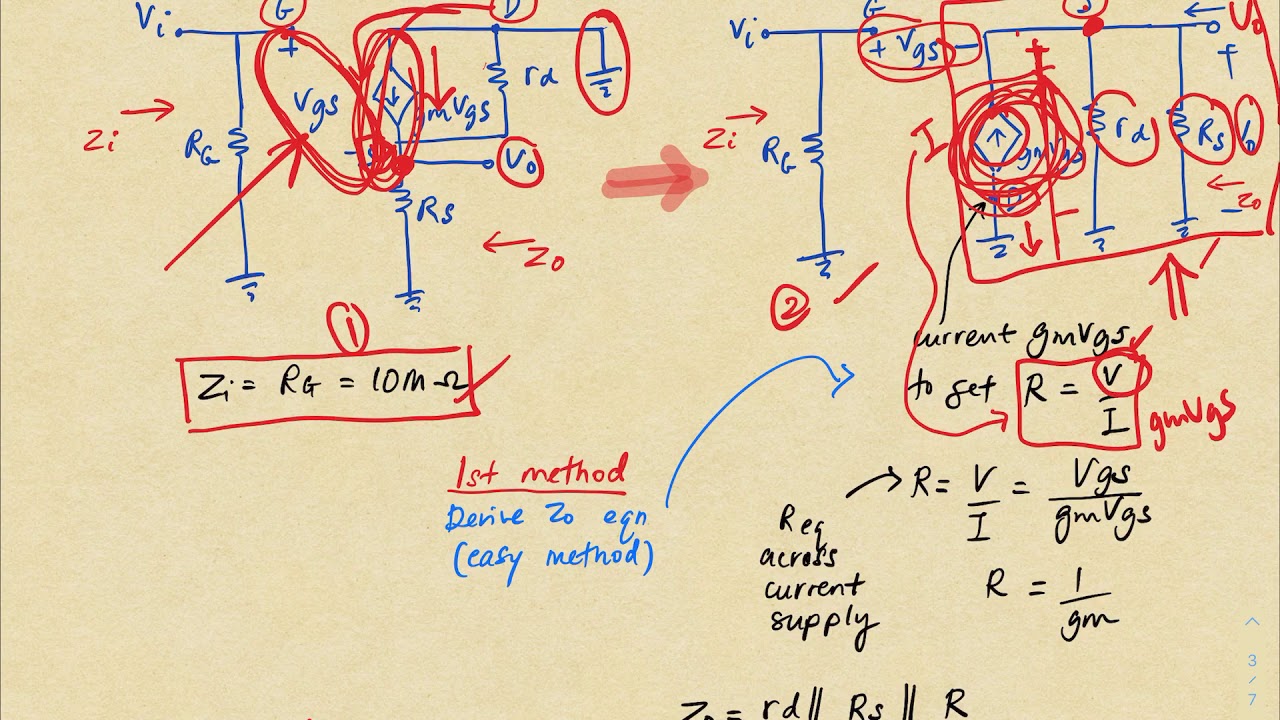 Vi G D
+
Vgs gmVgs rd
Zi RG
- S Vo
RS
Zo
①
Zi = RG = 10M Ω
Vi G S Vo
+ Vgs - +
Zi RG I gmVgs rd RS Vo
D Zo
-
②
current gmVgs
to get R = V / I gmVgs
1st method
Derive Zo eqn
(easy method)
Req
across
current
supply
R = V / I = Vgs / gmVgs
R = 1 / gm
Zo = rd || RS || R
3
/
7